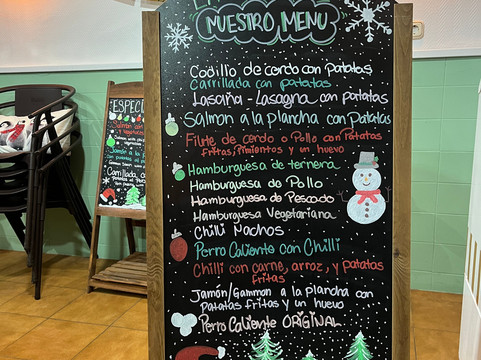 NUESTRO MENU
Codillo de cerdo con Patatas
Carrillada con patatas
Lasaña - Lasagna con patatas
Salmon a la plancha con Patatas
Filete de cerdo o Pollo con Patatas
fritas, Pimientos y un huevo
Hamburguesa de ternera
Hamburguesa de Pollo
Hamburguesa de Pescado
Hamburguesa Vegetariana
Chilli Nachos
Perro Caliente con Chilli
Chilli con carne, arroz, y patatas
fritas
Jamón/Gammon a la plancha con
Patatas fritas y un huevo
Perro Caliente ORIGINAL
ESPECI
Salmon con
Carrillada co